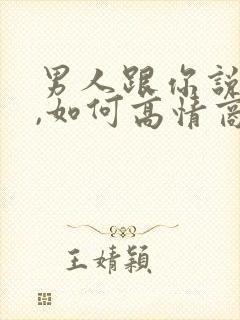 男人跟你說
,如何高情商
王婧穎